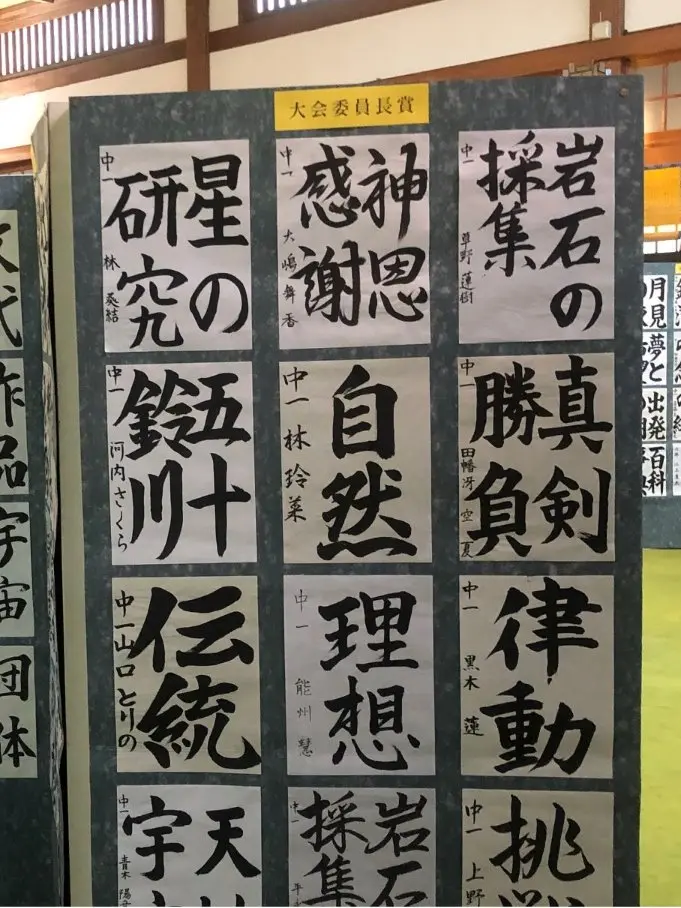 大会委員長賞
岩石の
採集
中一 草野 蓮樹
神恩
感謝
中一 大嶋 舞香
星の
研究
中一 林 葵結
真剣
勝負
中一 田幡冴 空 夏
自然
中一 林 玲菜
五十
鈴川
中一 河内さくら
律動
中一 黒木 蓮
理想
中一 能州 慧
伝統
中一 山口 とりの
挑
中一 上野
岩石
採集
中一
天
宇
中一 青木
作品
宇宙
団体
月見
夢と
出発
百科